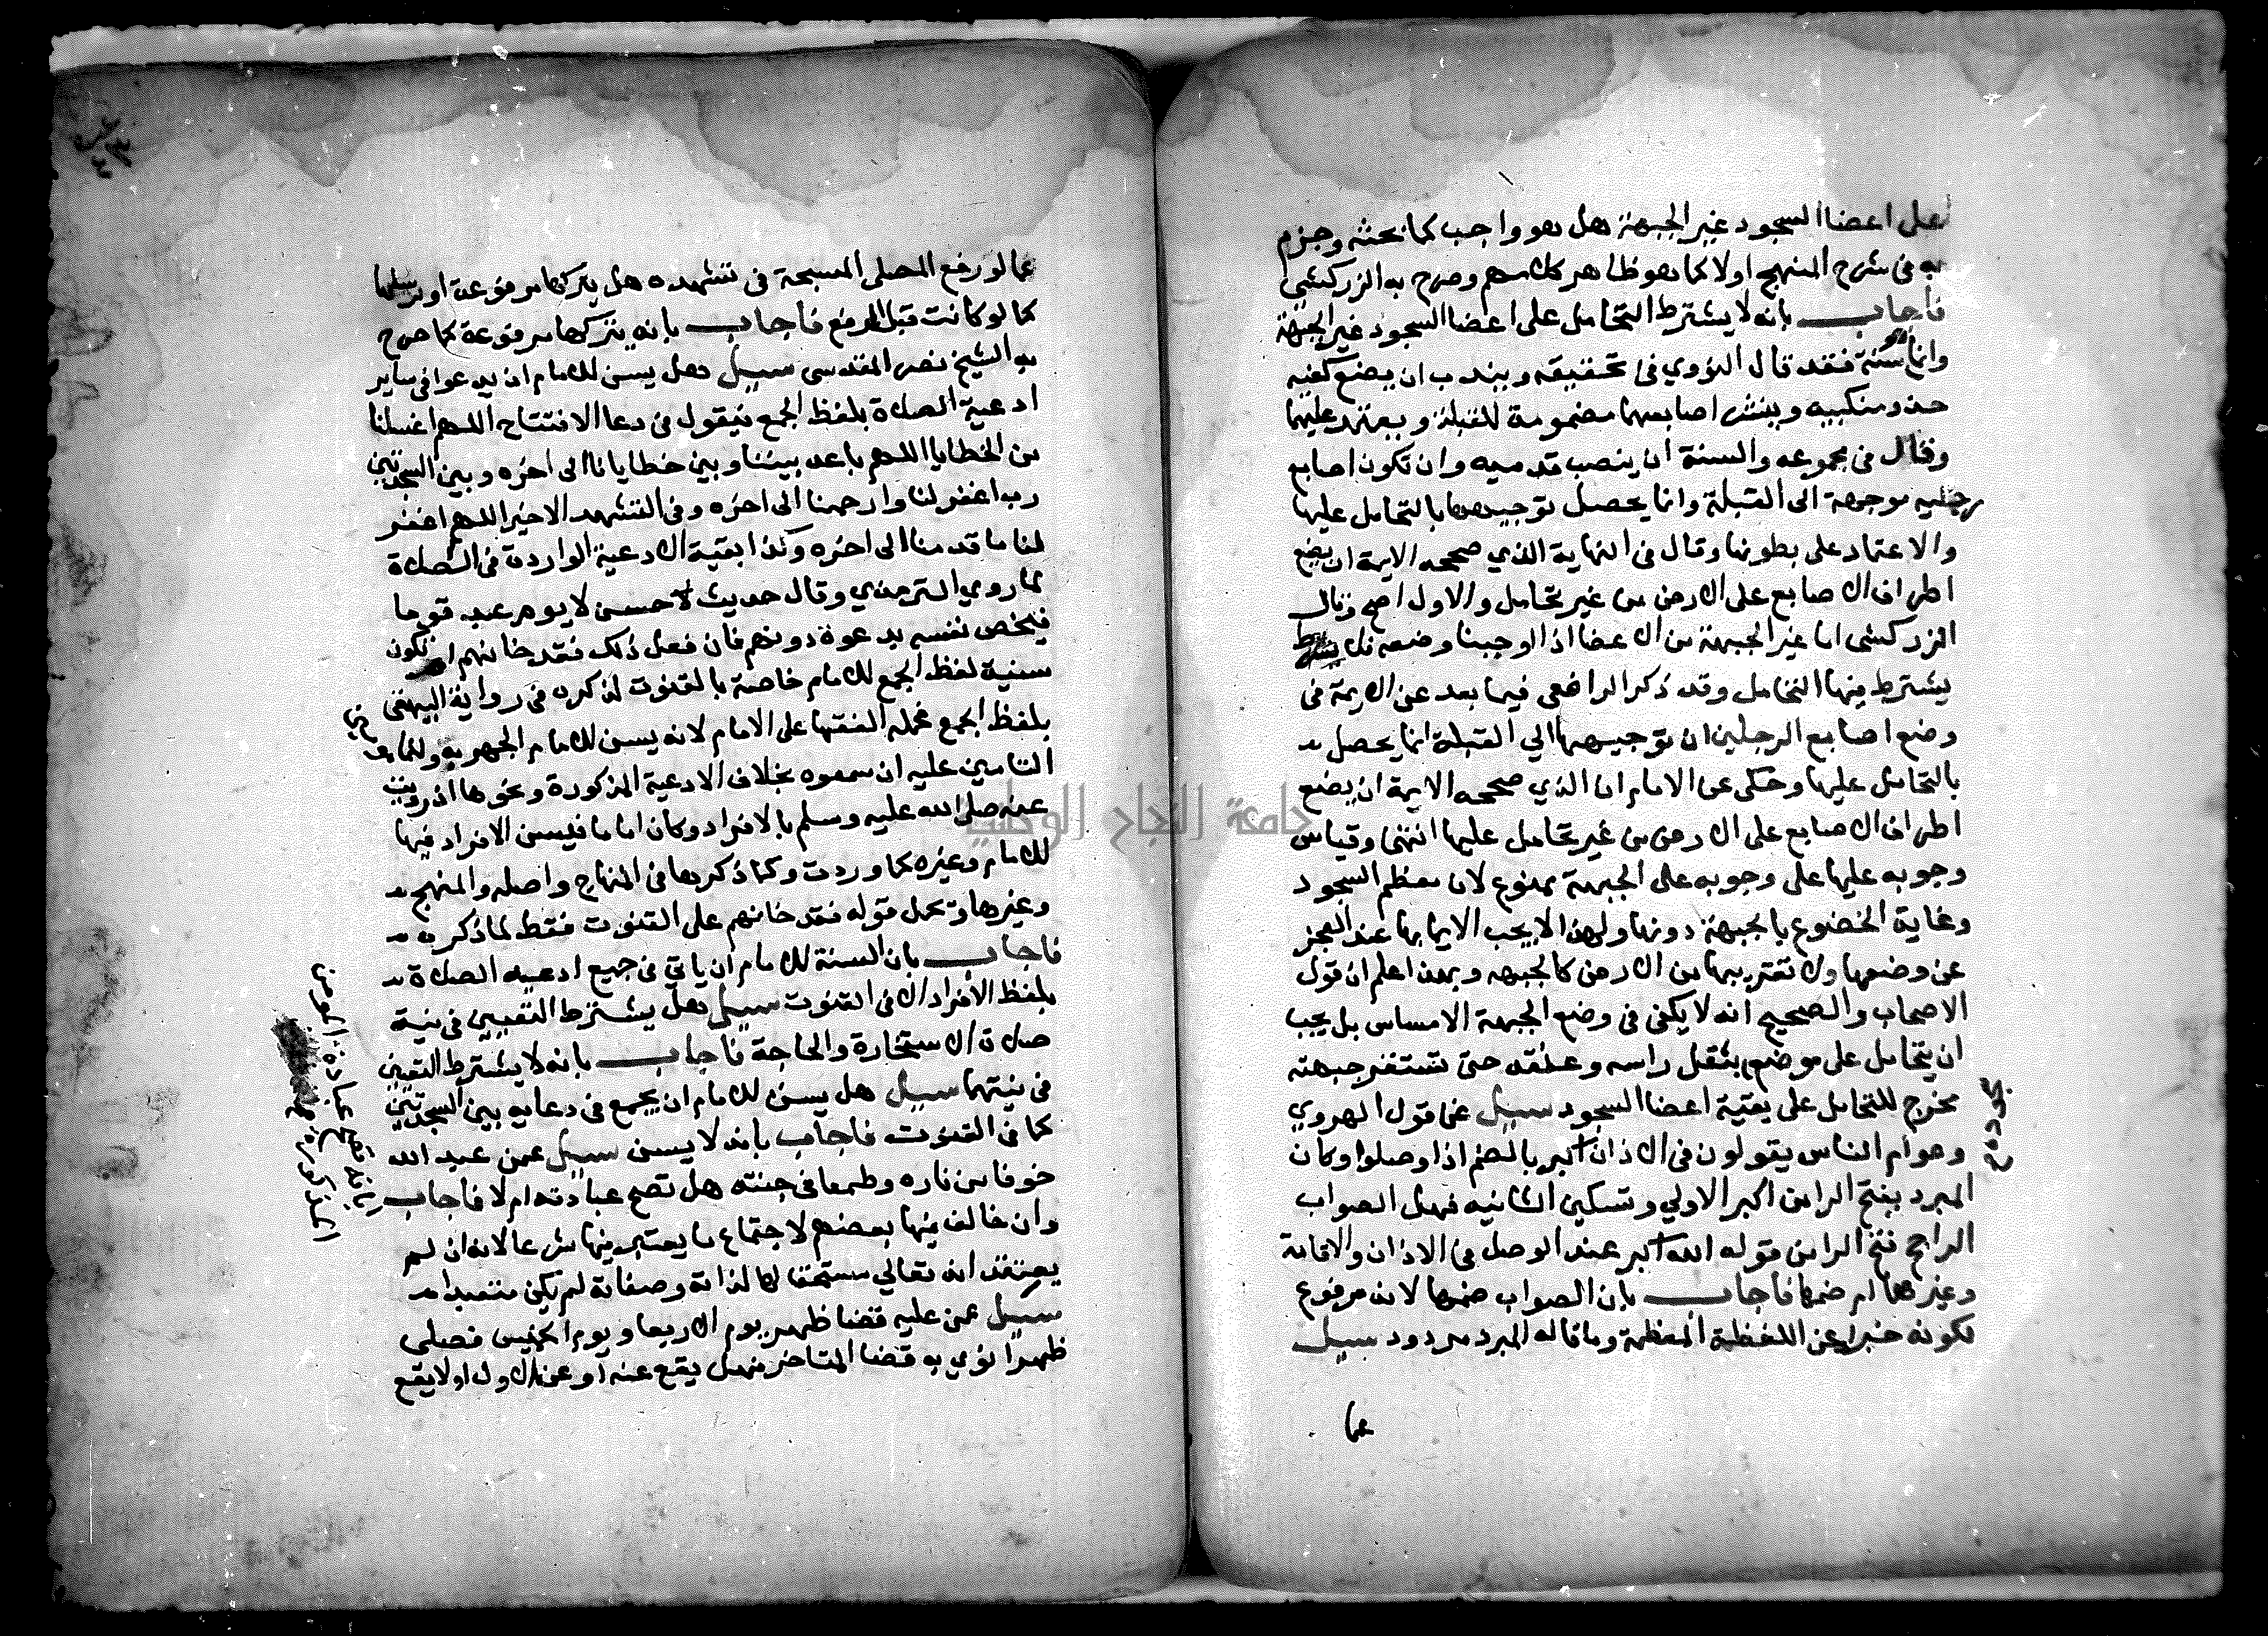 على اعضا السجود غير الجبهة هل هو واجب كما بحثه وجزم
به فى شرح المنهج اولا كما هو ظاهر كلامهم وصرح به الزركشي
فاجاب بانه لا يشترط التحامل على اعضا السجود غير الجبهة
وانما سنة فقد قال النووي فى تحقيقه ويندب ان يضع كفيه
حذو منكبيه وينشر اصابعهما مضمومة للقبلة ويعتمد عليهما
وقال فى مجموعه والسنة ان ينصب قدميه وان تكون اصابع
رجليه موجهة الى القبلة وانما يحصل توجيهها بالتحامل عليها
والاعتماد على بطونها وقال فى النهاية الذي صححه الايمة ان يضع
اطراف الاصابع على الارض من غير تحامل والاول اصح وقال
الزركشى اما غير الجبهة من الاعضا اذا اوجبنا وضعه فلا
يشترط فيها التحامل وقد ذكر الرافعى فيما بعد عن الايمة فى
وضع اصابع الرجلين ان توجيهها الي القبلة انما يحصل
بالتحامل عليها وحكى عن الامام ان الذي صححه الايمة ان يضع
اطراف الاصابع على الارض من غير تحامل عليها انتهى وقياس
وجوبه عليها على وجوبه على الجبهة ممنوع لان معظم السجود
وغاية الخضوع بالجبهة دونها ولهذا لا يجب الايما بها عند العجز
عن وضعها ولا تقريبها من الارض كالجبهه وبهذا اعلم ان قول
الاصحاب والصحيح انه لا يكفى فى وضع الجبهة الامساس بل يجب
ان يتحامل على موضع بثقل راسه وعنقه حتى تستقر جبهته
مخرج للتحامل على بقية اعضا السجود سيل عن قول الهروي
وعوام الناس يقولون فى الاذان اكبر بالضم اذا وصلوا وكان
المبرد يفتح الرا من اكبر الاولي وتسكين الثانيه فهل الصواب
الراجح فتح الرا من قوله الله اكبر عند الوصل فى الاذان والاقامة
وغيرها ام ضمها فاجاب بان الصواب ضمها لانه مرفوع
لكونه خبرا عن اللفظة المعظمة وما قاله المبرد مردود سيل
عما
عما لو رفع المصلى المسبحة فى تشهده هل يتركها مرفوعة او يرسلها
كما لو كانت قبل الرفع فاجاب بانه يتركها مرفوعة كما صرح
به الشيخ نصر المقدسى سيل هل يسن للامام ان يدعوا فى ساير
ادعية الصلاة بلفظ الجمع فيقول فى دعا الافتتاح اللهم اغسلنا
من الخطايا اللهم باعد بيننا وبين خطايانا الى اخره وبين السجدتين
رب اغفر لنا وارحمنا الى اخره وفى التشهد الاخير اللهم اغفر
لنا ما قدمنا الى اخره وكذا بقية الادعية الواردة فى الصلاة
لما روي الترمذي وقال حديث حسن لا يوم عبد قوما
فيخص نفسه بدعوة دونهم فان فعل ذلك فقد خانهم او تكون
سنية لفظ الجمع للامام خاصة بالقنوت لذكره فى رواية البيهقى
بلفظ الجمع فحمله الفقها على الامام لانه يسن للامام الجهر به وللماموم
التامين عليه ان سمعوه بخلاف الادعية المذكورة ونحوها اذ رويت
عنه صلى الله عليه وسلم بالافراد وكان اماما فليسن الافراد فيها
للامام وغيره كما وردت وكما ذكرها فى المنهاج واصله والمنهج
وغيرها وتحمل قوله فقد خانهم على القنوت فقط لما ذكره
فاجاب بان السنة للامام ان ياتي فى جميع ادعيه الصلاة
بلفظ الافراد الا فى القنوت سيل هل يشترط التعيين فى نية
صلاة الاستخارة والحاجة فاجاب بانه لا يشترط التعيين
فى نيتها سيل هل يسن للامام ان يجمع فى دعايه بين السجدتين
كما فى القنوت فاجاب بانه لا يسن سيل عمن عبد الله
خوفا من ناره وطمعا فى جنته هل تصح عبادته ام لا فاجاب
وان خالف فيها بعضهم لاجتماع ما يعتبر فيها شرعا لانه ان لم
يعتقد انه تعالي مستحقا لها لذاته وصفاته لم يكن متعبدا
سيل عمن عليه قضا ظهر يوم الاربعا ويوم الخميس فصلى
ظهرا نوي به قضا المتاخر فهل يقع عنه او عن الاول او لا يقع